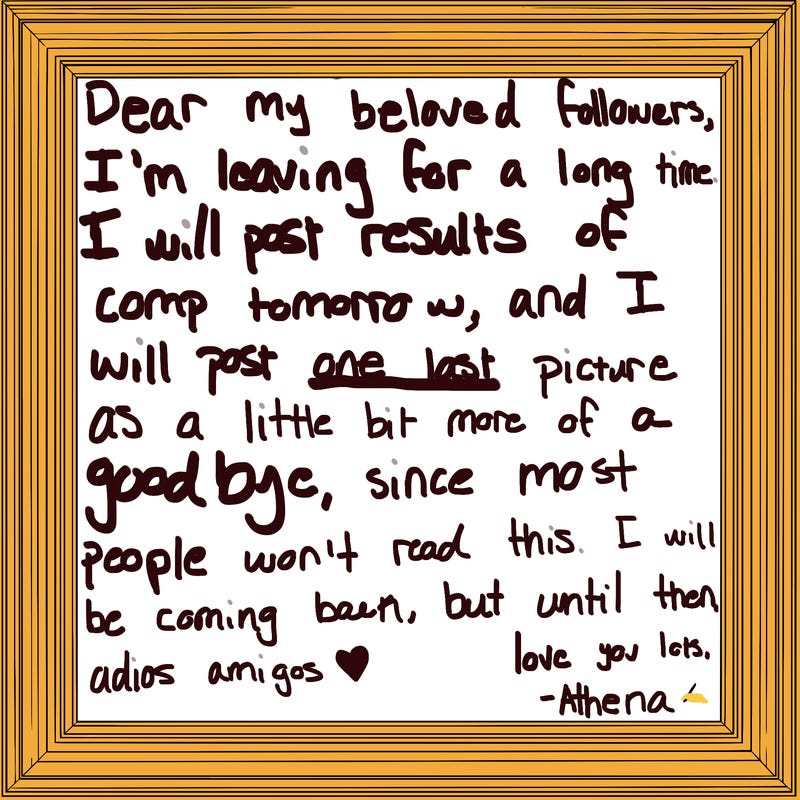 Dear my beloved followers,
I'm leaving for a long time.
I will post results of
comp tomorrow, and I
will post one last picture
as a little bit more of a
goodbye, since most
people won't read this. I will
be coming back, but until then
adios amigos ♥ love you lots.
-Athena